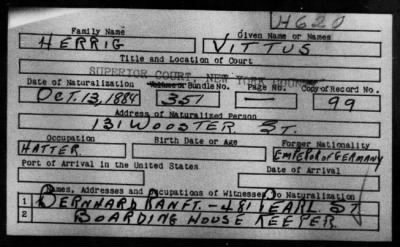 H620
Family Name Given Name or Names
HERRIG VITTUS
Title and Location of Court
SUPERIOR COURT, NEW YORK COUNTY
Date of Naturalization Volume or Bundle No. Page No. Copy of Record No.
OCT. 13, 1884 351 — 99
Address of Naturalized Person
131 WOOSTER ST.
Occupation Birth Date or Age Former Nationality
HATTER EMPEROR OF GERMANY
Port of Arrival in the United States Date of Arrival
Names, Addresses and Occupations of Witnesses To Naturalization
1 BERNHARD RANFT. - 481 PEARL ST
2 BOARDING HOUSE KEEPER